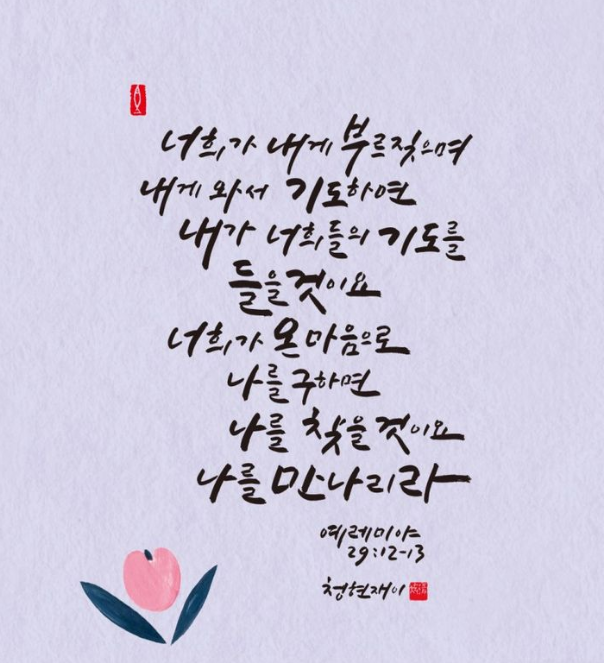 너희가 내게 부르짖으며
내게 와서 기도하면
내가 너희들의 기도를
들을 것이요
너희가 온 마음으로
나를 구하면
나를 찾을 것이요
나를 만나리라
예레미야
29:12-13
청현재이